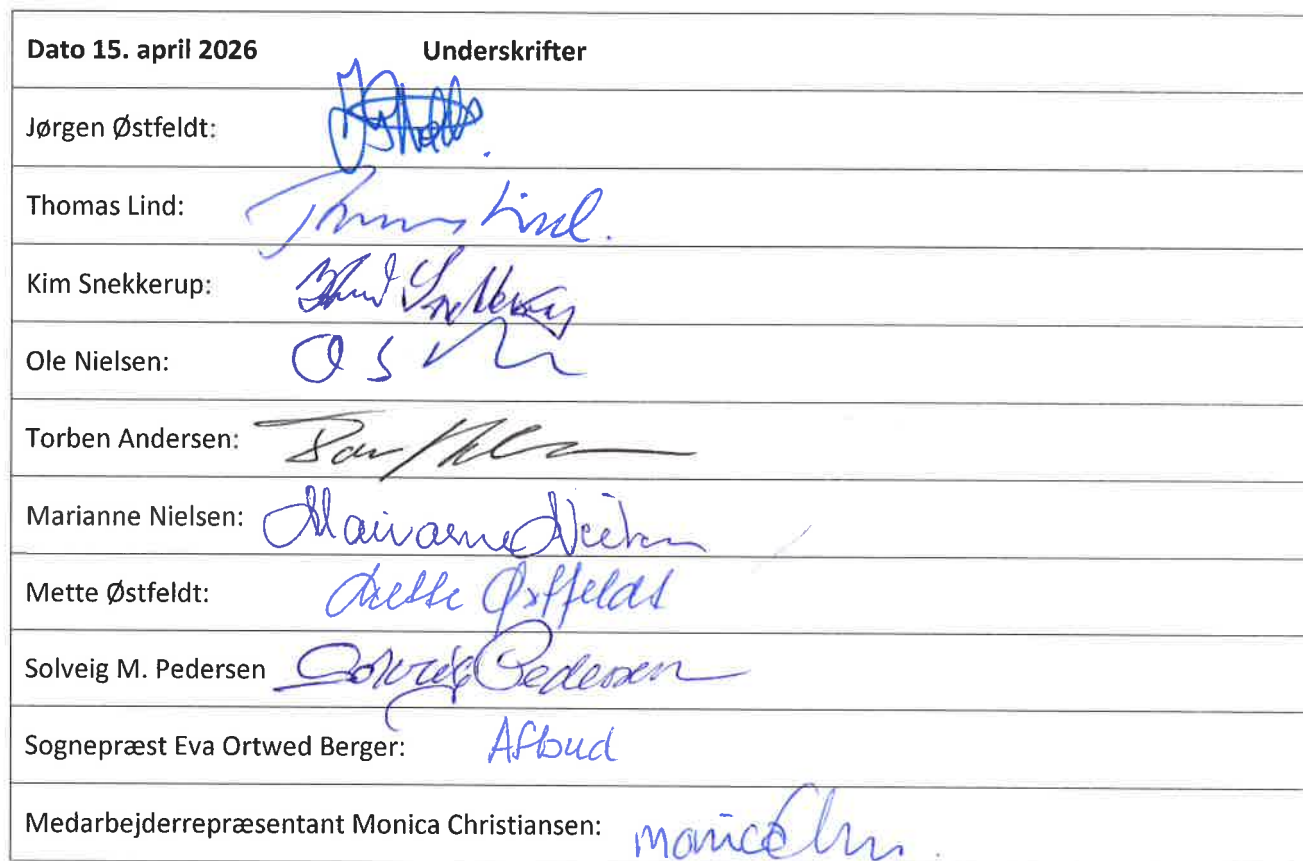 Dato 15. april 2026 Underskrifter
Jørgen Østfeldt:
Thomas Lind: Thomas Lind.
Kim Snekkerup:
Ole Nielsen:
Torben Andersen:
Marianne Nielsen: Marianne Nielsen
Mette Østfeldt: Mette Østfeldt
Solveig M. Pedersen Solveig Pedersen
Sognepræst Eva Ortwed Berger: Afbud
Medarbejderrepræsentant Monica Christiansen: Monica